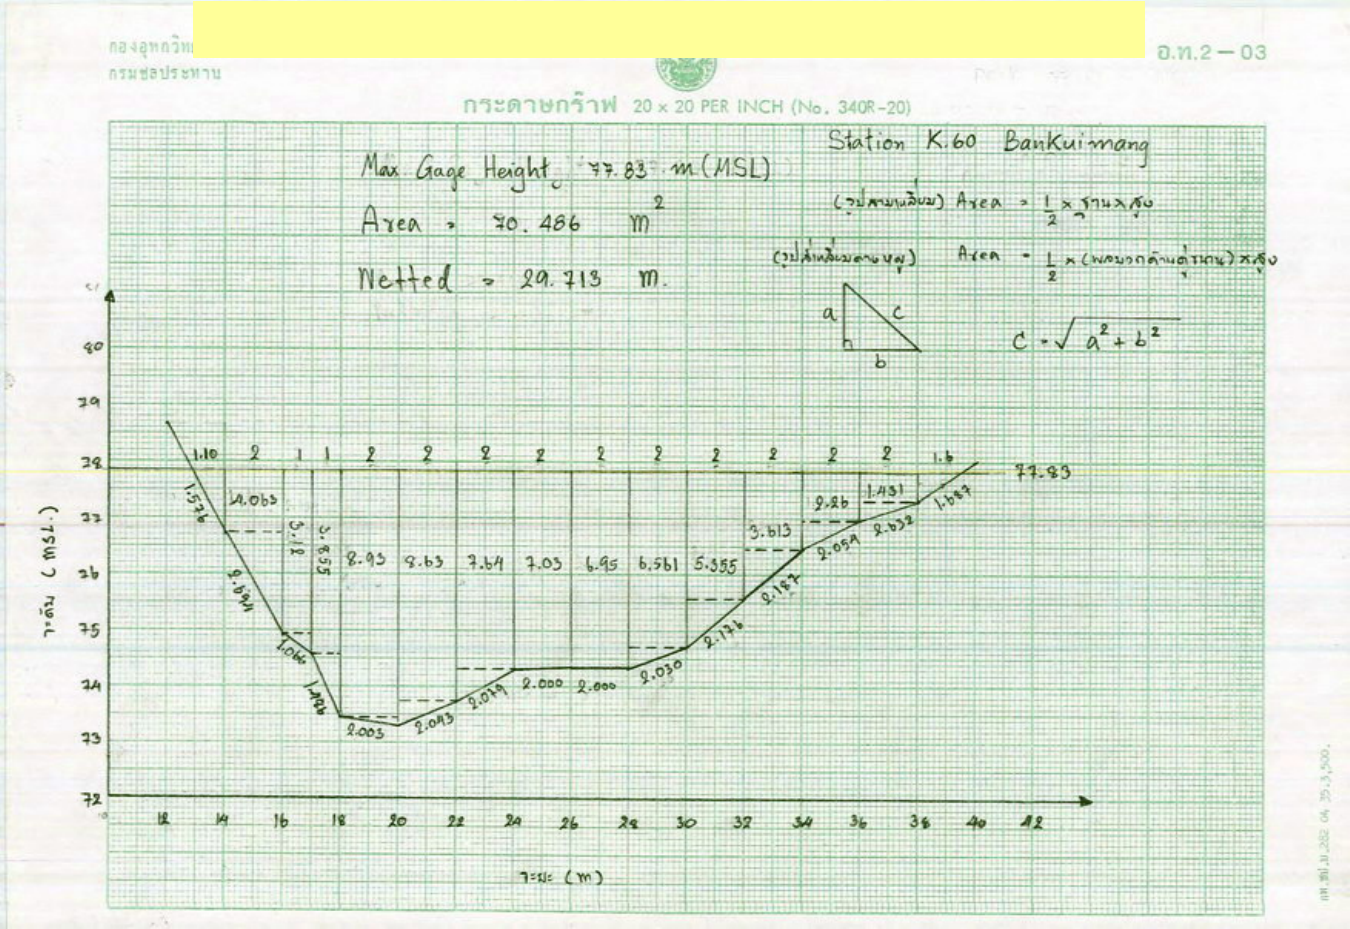 อ.ท.2 — 03
กรมชลประทาน
กระดาษกร๊าฟ 20 x 20 PER INCH (No. 340R-20)
Station K.60 BanKuimang
Max Gage Height, 77.837 m (MSL)
(รูปสามเหลี่ยม) Area = 1/2 x ฐาน x สูง
Area = 70.486 m2
(รูปสี่เหลี่ยมคางหมู) Area = 1/2 x (ผลบวกด้านคู่ขนาน) x สูง
Netted = 29.713 m.
a c
b
C = √ a2 + b2
80
79
78
1.10 2 1 1 2 2 2 2 2 2 2 2 2 2 1.6
77.83
77
1.576 4.063 3.12 3.855 8.93 8.63 7.64 7.03 6.95 6.561 5.355 3.613 2.26 1.431
76
75
74
73
72
2.694 1.066 1.486 2.003 2.043 2.079 2.000 2.000 2.030 2.176 2.187 2.059 2.032 1.687
ระดับ (MSL.)
12 14 16 18 20 22 24 26 28 30 32 34 36 38 40 42
ระยะ (m)